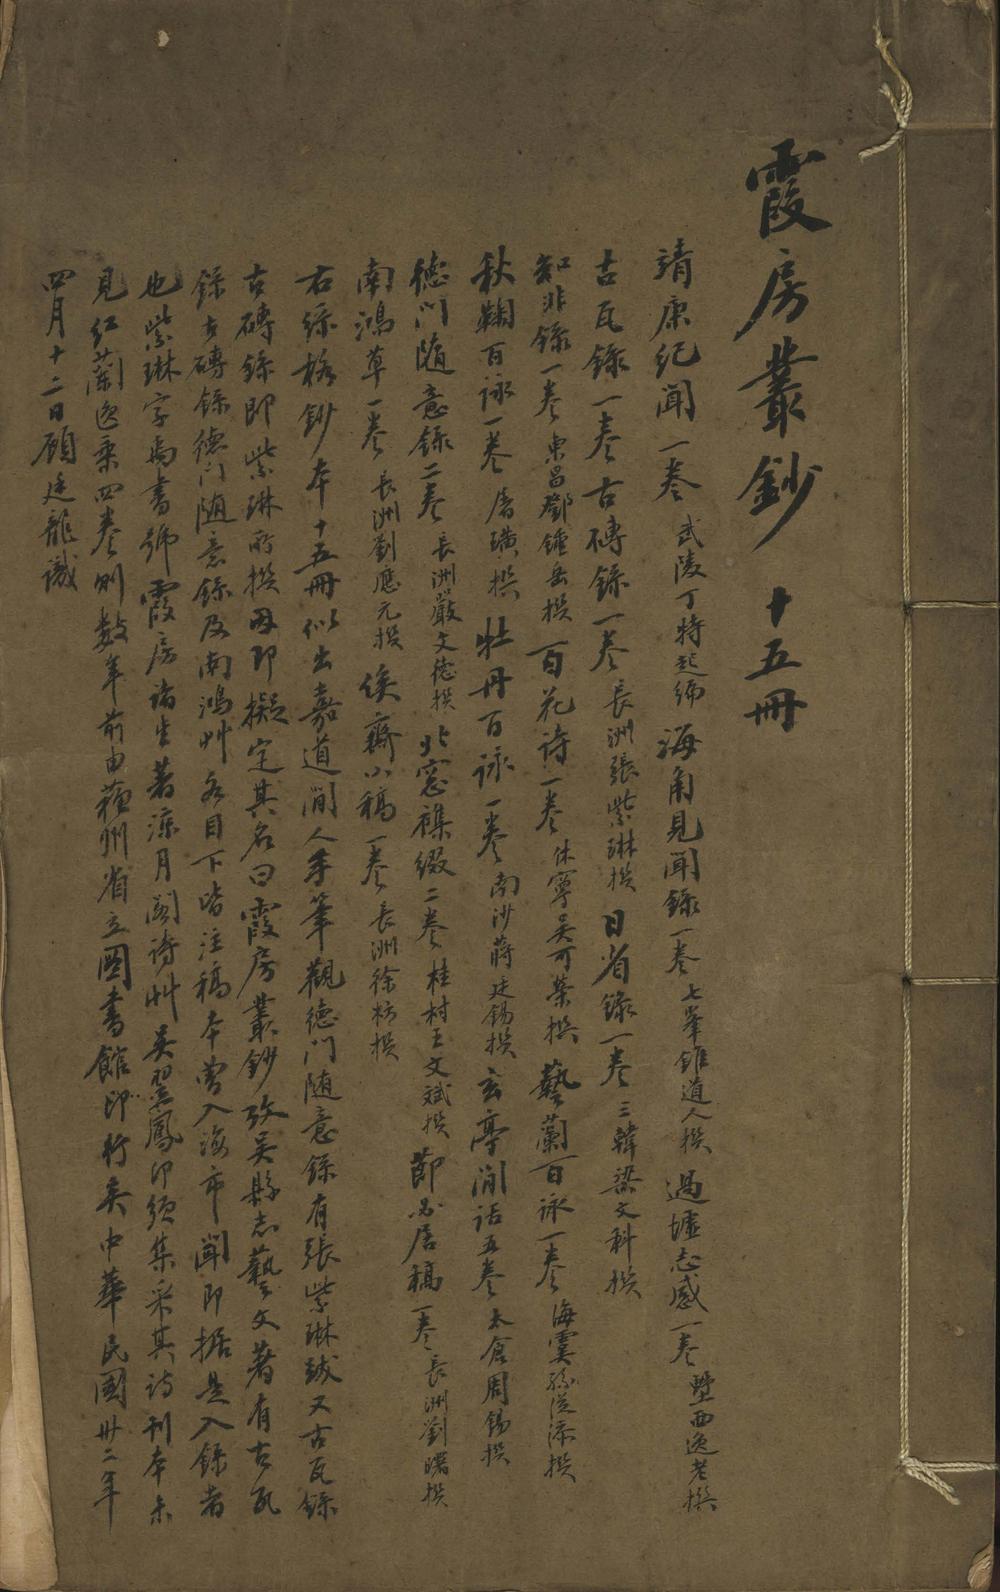 霞房叢鈔 十五冊
靖康紀聞一卷 武陵丁特起編 海角見聞錄一卷 七峯錐道人撰 過墟志感一卷 墅西逸老撰
古瓦錄一卷 古磚錄一卷 長洲張紫琳撰 日省錄一卷 三韓梁文科撰
知非錄一卷 東昌鄧鍾岳撰 百花詩一卷 休寧吳可棻撰 藝蘭百詠一卷 海虞孫從添撰
秋鞠百詠一卷 屠璜撰 牡丹百詠一卷 南沙蔣廷錫撰 玄亭閒話五卷 太倉周錫撰
德門随意錄二卷 長洲嚴文德撰 北窓襍綴二卷 桂村王文斌撰 節必居稿一卷 長洲劉曙撰
南鴻草一卷 長洲劉應元撰 俟齋小稿一卷 長洲徐枋撰
右綠格鈔本十五冊似出嘉道閒人手筆觀德門随意錄有張紫琳跋又古瓦錄
古磚錄即紫琳所撰因即擬定其名曰霞房叢鈔攷吳縣志藝文著有古瓦
錄古磚錄德門随意錄及南鴻艸各目下皆注稿本曾入滬市聞即据是入錄者
也紫琳字禹書號霞房諸生著涼月閣詩艸吳翌鳳卬須集采其詩刊本未
見紅蘭逸乘四卷則數年前由蘇州省立圖書館印行矣中華民國卅二年
四月十二日顧廷龍識